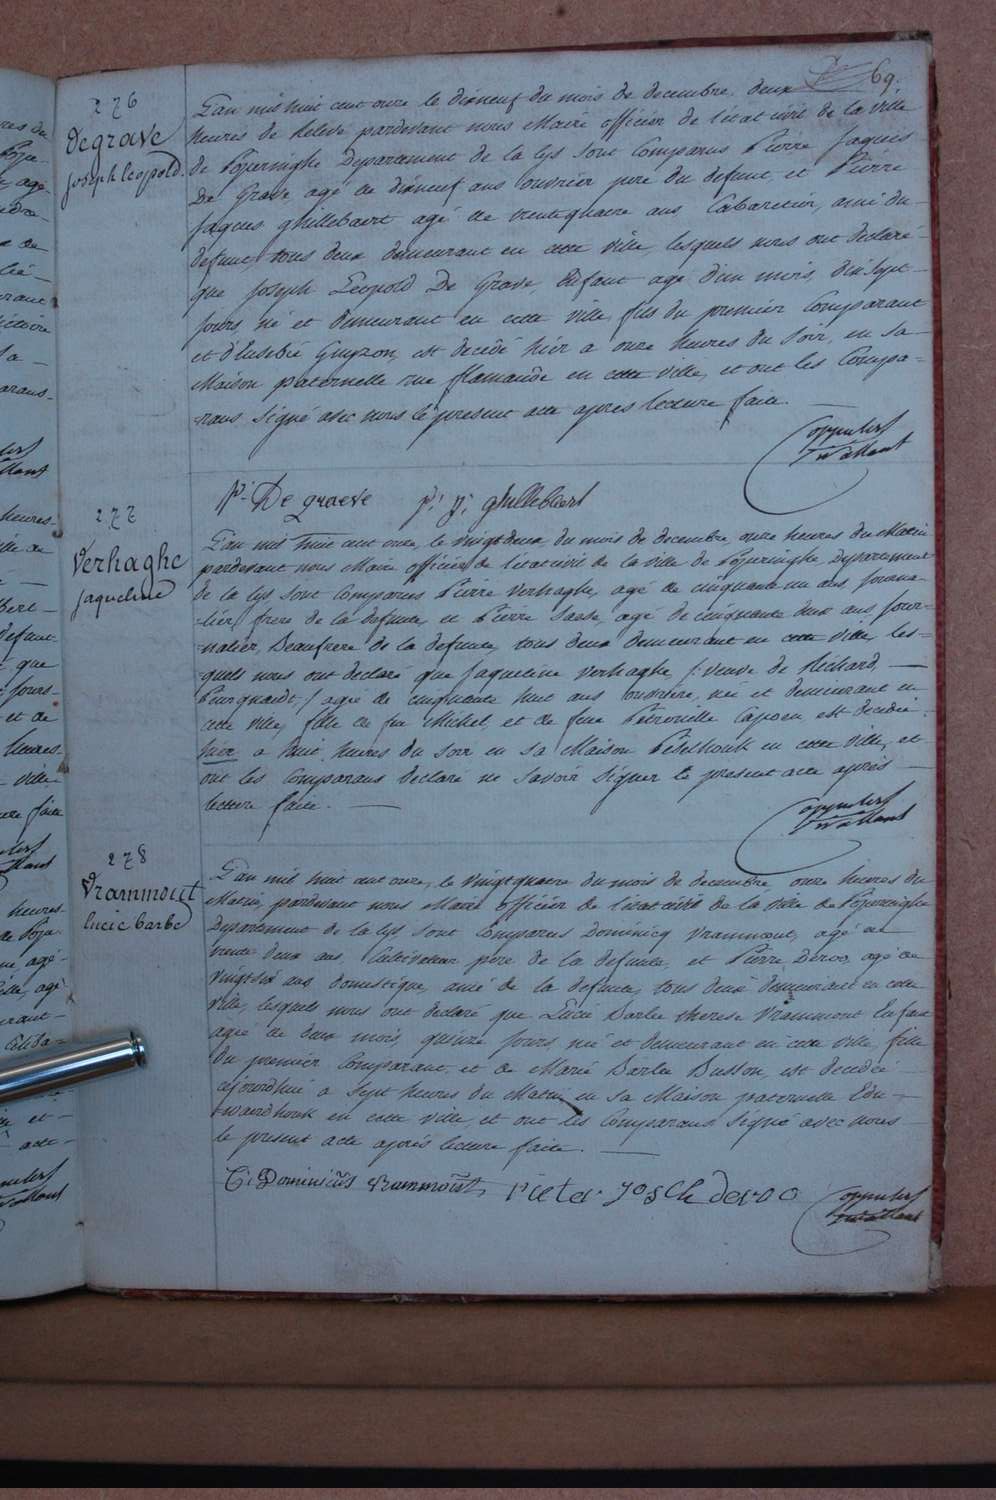 69.
276
Degrave
joseph leopold.
L'an mil huit cent onze le dixneuf du mois de decembre, deux
heures de relevé pardevant nous Maire officier de l'etat civil de la ville
de Poperinghe Departement de la Lys sont Comparus Pierre Jaques
De Grave agé de dixneuf ans ouvrier pere du defunt et Pierre
Jaques ghillebaert agé de trentequatre ans Cabaretier, ami du
defunt, tous deux demeurant en cette ville, lesquels nous ont declaré
que Joseph Léopold De Grave, Enfant agé d'un mois, dix sept
jours né et demeurant en cette ville, fils du premier Comparant
et d'Eusebie est decedé hier a onze heures du Soir, en sa
Maison paternelle rue flamande en cette ville, et ont les Compa-
rans signé avec nous le present acte apres lecture faite.
pr De graeve pr j: ghillebaert
277
Verhaghe
jaqueline
L'an mil huit cent onze, le vingtdeux du mois de decembre, onze heures du Matin
pardevant nous Maire officier de l'etat civil de la ville de Poperinghe, Departement
de la Lys sont Comparus Pierre Verhaghe, agé de cinquante un ans Journa-
-lier, frere de la defunte, et Pierre agé de cinquante deux ans jour-
nalier, Beaufrere de la defunte, tous deux demeurant en cette ville, les-
quels nous ont declaré que Jaqueline Verhaghe /: veuve de Richard,
:/ agée de cinquante huit ans ouvriere, née et demeurant en
cette ville, fille de feu Michel, et de feue Petronille Capoen, est decedée
hier a huit heures du soir en sa Maison en cette ville, et
ont les Comparans declaré ne savoir signer le present acte après
lecture faite.
278
Vrammout
lucie barbe
L'an mil huit cent onze, le vingtquatre du mois de decembre, onze heures du
Matin, pardevant nous Maire officier de l'etat civil de la ville de Poperinghe
Departement de la Lys sont Comparus Dominicq Vrammout, agé de
trente deux ans, Cultivateur pere de la defunte, et Pierre Deroo, agé de
vingtsix ans domestique, ami de la defunte, tous deux demeurant en cette
ville, lesquels nous ont declaré que Lucie Barbe therese Vrammout Enfant
agée de deux mois, quinze jours, né et demeurant en cette ville, fille
du premier Comparant, et de Marie Barbe Busson, est decedée
aujourdhui a Sept heures du Matin en sa Maison paternelle Edu-
-wardhouk en cette ville, et ont les Comparans Signé avec nous
le present acte après lecture faite.
Dominicus vrammout, pieter josch deroo